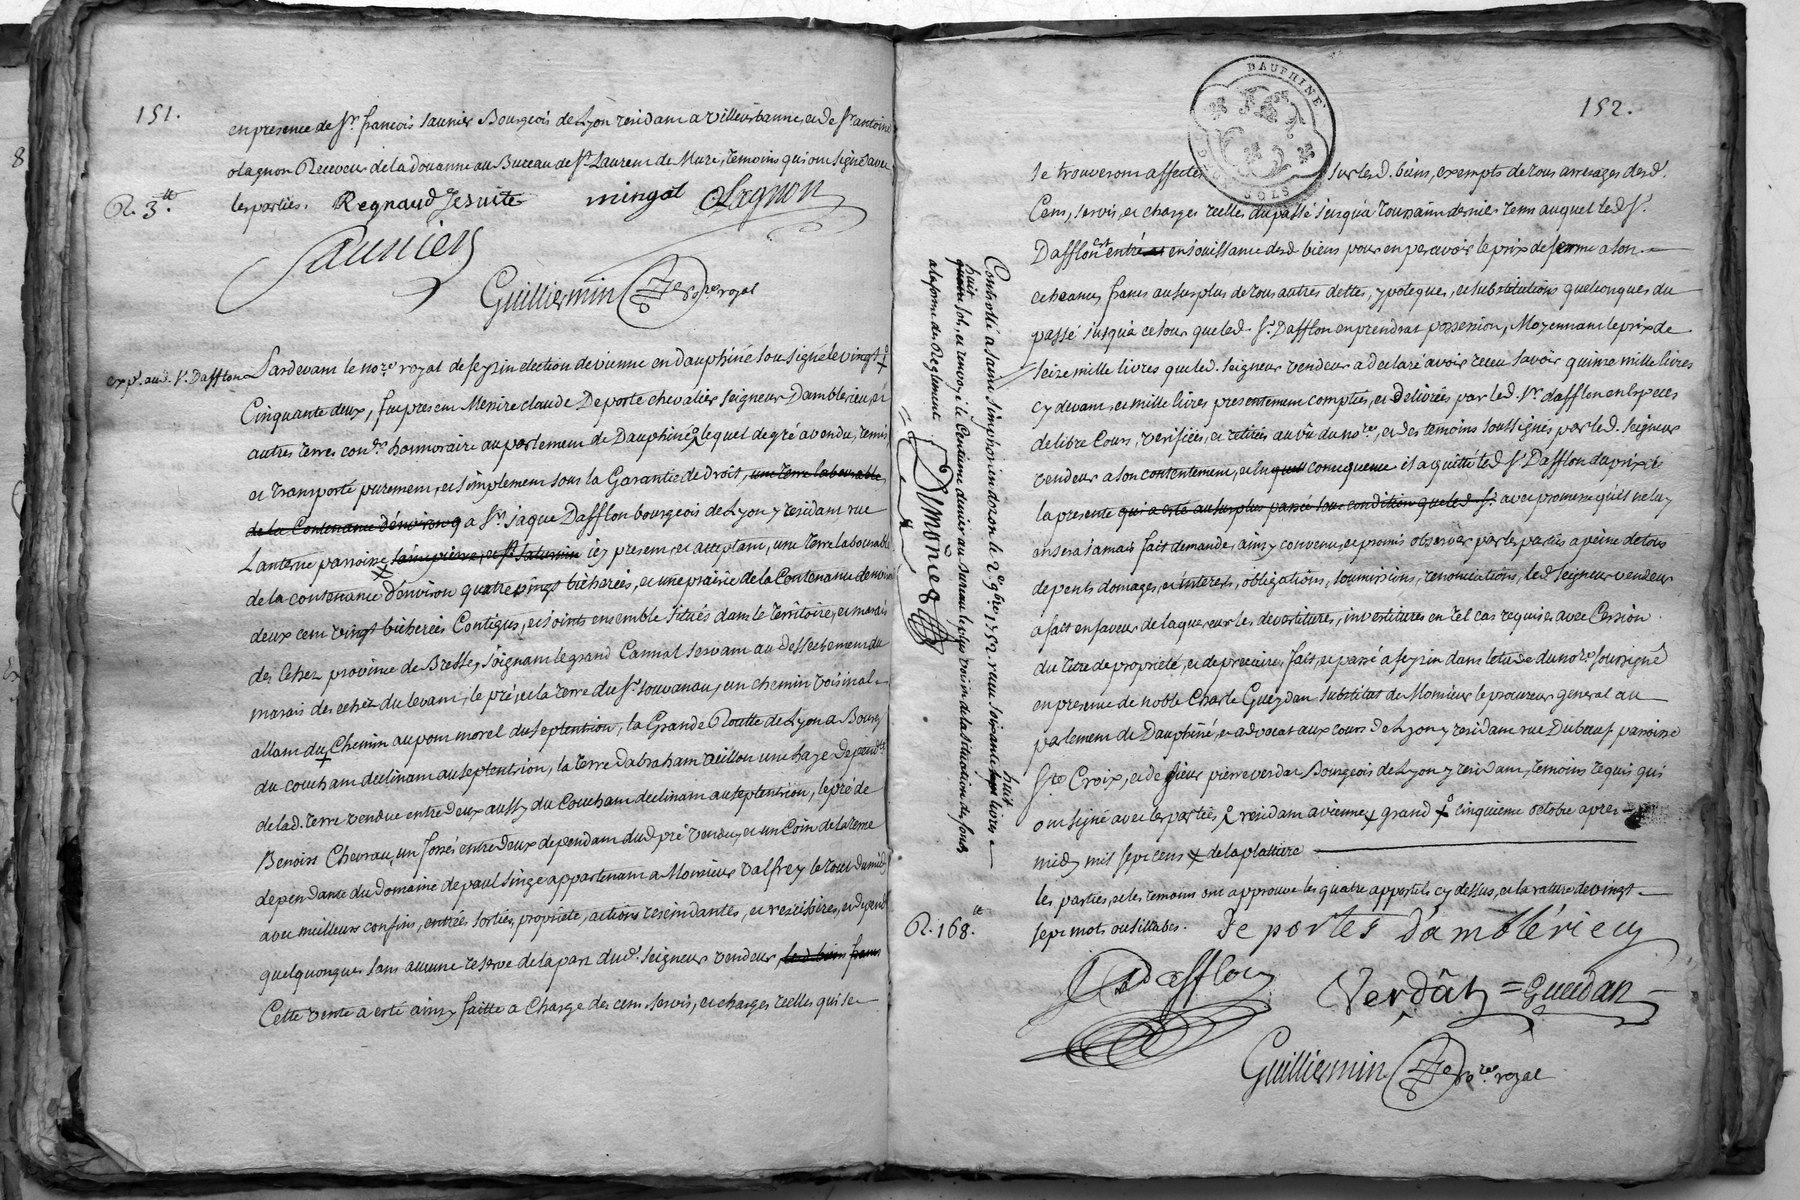 151.
en presence de Sr. francois saunier Bourgeois de Lyon residant a villeurbanne, et de Sr. antoine
olagnon Receveur de la douanne au Bureau de St. Laurent de Mure, temoins qui ont signé avec
les parties. Regnaud Jesuite mingat OLagnon
R. 3tt.
Saunier
Guilliermin no.re royal
exp. aud. Sr. Dafflon
Pardevant le no.re royal de seyzin election de vienne en dauphiné soussigné le vingt
Cinquante deux, fut present Messire claude De porte chevalier seigneur Damblerieu, et
autres terres con.er honnoraire au parlement de Dauphiné lequel de gré a vendu, remis
et transporté purement, et simplement sous la Garantie de droit, une terre labourable
de la Contenance d'environ a Sr. jaque Dafflon bourgeois de Lyon y residant rue
Lanterne parroisse saint pierre, et St. saturnin icy present et acceptant, une terre labourable
de la contenance d'environ quatre vingt bicherées, et une prairie de la Contenance denviron
deux cent vingt bicherées Contigus, et joints ensemble situés dans le territoire, et marais
des Echez province de Bresse, joignant le grand Cannal servant au dessechement du
marais des echez du levant, le pré, et la terre du Sr. souvanau, un chemin voisinal
allant du Chemin au pont morel du septentrion, la Grande Routte de Lyon a Bourg
du couchant declinant au septentrion, la terre dabraham veillon une haye Dependte
de lad. terre vendue entre deux aussy du Couchant declinant au septentrion, le pré de
Benoist Chevrau, un fossé entre deux dependant dud. pré vendu, et un Coin de la terre
dependante du domaine de paul singe appartenant a Monsieur valfrey le tout du midy
avec meilleurs confins, entrées sorties, propriete, actions rescindantes, et rescisoires, et depend
quelquonques sans aucune reserve de la part dud. seigneur vendeur, lesd. biens francs
Cette vente a esté ainsy faitte a Charge des cens servis, et charges reelles qui se
152.
DAUPHINÉ
DEUX SOLS
se trouveront affectés sur lesd. biens, exempts de tous arrerages desd.
Cens, servis, et charges reelles du passé jusqu'a toussaint dernier tems auquel led. Sr.
Dafflon est entré en jouissance desd. biens pour en percevoir le prix de ferme a son
echeance, francs au surplus de tous autres dettes, ypoteques, et substitutions quelconques du
passé jusqu'a ce jour que led. Sr. Dafflon en prendrat possession, Moyennant le prix de
seize mille livres que led. seigneur vendeur a declaré avoir receu savoir quinze mille livres
cy devant, et mille livres presentement comptés, et delivrées par led. Sr. dafflon en especes
de libre Cours, verifiées, et retirés au vû du no.re, et des temoins soussignés par led. seigneur
vendeur a son contentement, et en consequence il a quitté led. Sr. Dafflon du prix de
la presente qui a esté au surplus passée sous condition que led. Sr. avec promesse qu'il ne luy
en sera jamais fait demande, ainsy convenu, et promis observer par les parties a peine de tous
depents domages, et interets, obligations, soumissions, renonciations, led. seigneur vendeur
a fait en faveur de laquereur les devestitures, investitures en tel cas requises avec Cession
du titre de proprieté, et de precaire, fait, et passé a seyzin dans letude du no.re soussigné
en presence de noble Charle Gueydan substitut de Monsieur le procureur general au
parlement de Dauphiné, et advocat aux cours de Lyon y residant rue Du bœuf parroisse
Ste Croix, et de sieur pierre verdat Bourgeois de Lyon y residant, temoins requis qui
ont signé avec les parties, residant a vienne grand cinquieme octobre apres
midy mil sept cens de la plattiere
les parties, et les temoins ont approuvé les quatre appostils cy dessus, et la rature de vingt
sept mots ou sillabes. De portes d'amblerieu
R. 168.tt
JDafflon Verdat Gueidan
Guilliermin no.re royal
Controllé a saint simphorien dozon le 2.e 9bre 1752. reçu soixante huit livres
huit sols, et renvoyé le Centieme denier au bureau le plus voisin de la situation des fonds
a la forme du Reglement Dumone